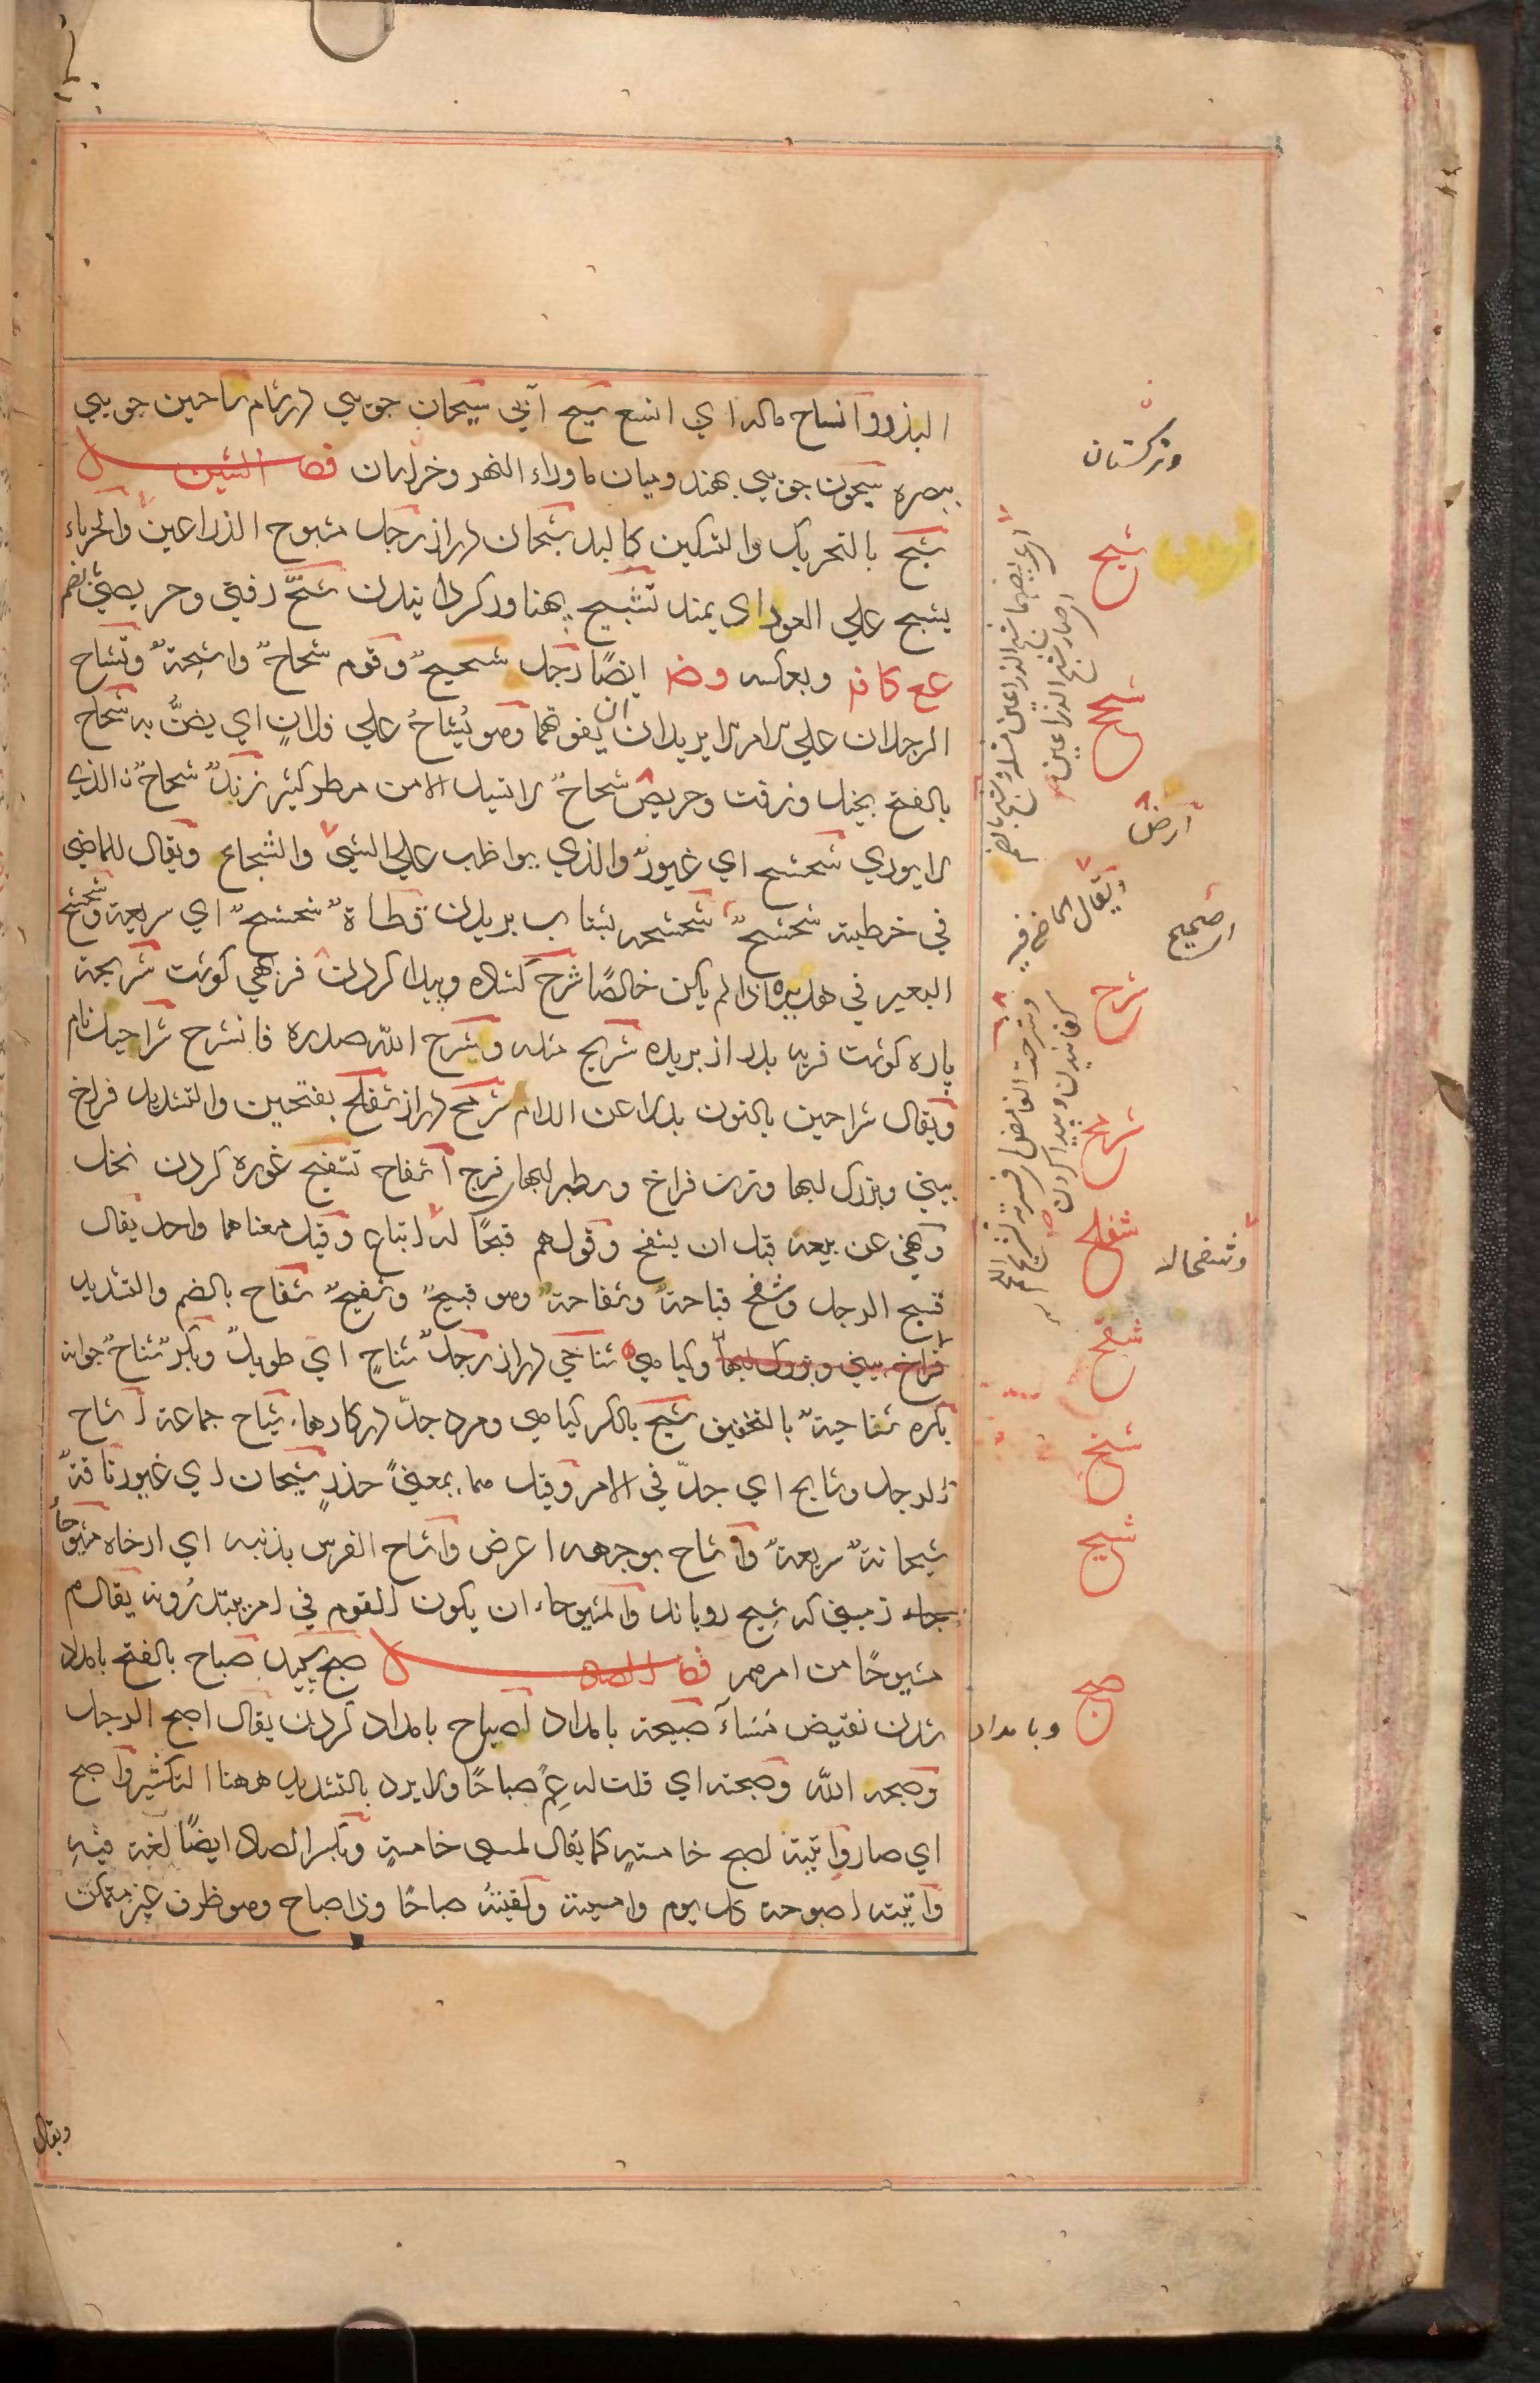 البذرو وانساح ماله اي اتسع سيح آبي سيحان جويي در شام ساحين جويي
ببصره سيحون جويي بهند وميان ماوراء النهر وخراسان فصل الشين
شبح بالتحريك والتسكين كالبد شبحان دراز رجل مشبوح الذراعين والحرباء
يشبح علي العود اي يمتد تشبيح پهناور كردانيدن شح زفتي وحريصي بضم
عع كا فر وبعكسه وضر ايضًا رجل شحيحٌ وقوم شحاحٌ واشحةٌ وتشاح
الرجلان علي الامر لا يريدان ان يفوتهما وهو يُشاحُ علي فلانٍ اي يضنُّ به شحاح
بالفتح بخيل وزفت وحريص شحاحٌ لا تسيل الا من مطر كثير زندٌ شحاحٌ الذي
لا يوري شحشح اي غيورٌ والذي يواظب علي الشيء والشجاع ويقال للماضي
في خطبته شحشحٌ شحشحه بشتاب بريدن قطاةٌ شحشحٌ اي سريعة وشحشح
البعير في هديره اذا لم يكن خالصًا شرح كشاده وپيدا كردن فرهي كوشت شريحة
پاره كوشت فربه بدراز بريده شريح مثله وشرح الله صدره فانشرح شراحيل نام
ويقال شراحين بالنون بدلا عن اللام شرمح دراز شفلح بفتحين والتشديد فراخ
بيني وبزرك لبها وزن فراخ وسطبر لبهاء فرج اشفاح تشفيح غوره كردن نخل
ونهي عن بيعه قبل ان يشفح وقولهم قبحًا له اتباع وقيل معناهما واحد يقال
قبح الرجل وشفح قباحةً وشفاحةً وهو قبيحٌ وشفيحٌ شفاح بالضم والتشديد
فراخ بيني وبزرك لبها وكياهي شناحي دراز رجلٌ شناحٍ اي طويلٌ وبكرٌ شناحٌ جوانه
بكره شناحيةٌ بالتخفيف شيح بالكسر كياهي ومرد جدّ در كارها شياح جماعة اشاح
الرجل وشايح اي جدّ في الامر وقيل هما بمعنى حذر شيحان اي غيور ناقةٌ
شيحانةٌ سريعةٌ واشاح بوجهه اعرض واشاح الفرس بذنبه اي ارخاه مشيوحاً
جاء زميني كه شيح روياند والمشيوحاء ان يكون القوم في امرٍ يبتدرونه يقال هم
مشيوحًا من امرهم فصل الصاد صبح سپيد صباح بالفتح بامداد
شدن نقيض مساء صبيحة بامداد اصباح بامداد كردن يقال اصبح الرجل
وصبحه الله وصبحته اي قلت له عِمْ صباحًا ولا يرد بالتشديد ههنا التكثير واصبح
اي صار واتيته لصبح خامسةٍ كما يقال لمسى خامسةٍ وبكسر الصاد ايضًا لغة فيه
واتيته اصبوحة كل يوم وامسية ولقيته صباحًا وذا صباح وهو ظرف غير متمكن
وتركستان
شبح
شح
ارض
شرح
شرمح
شفلح
شفح
شنح
شيح
صبح
وبامداد
ويقال